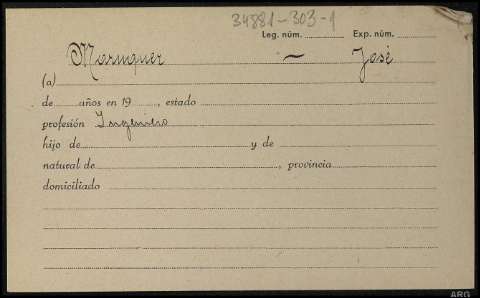 34881-303-1
Leg. núm. Exp. núm.
Maruquer — José
(a)
de años en 19 , estado
profesión Ingeniero
hijo de y de
natural de , provincia
domiciliado
ARG